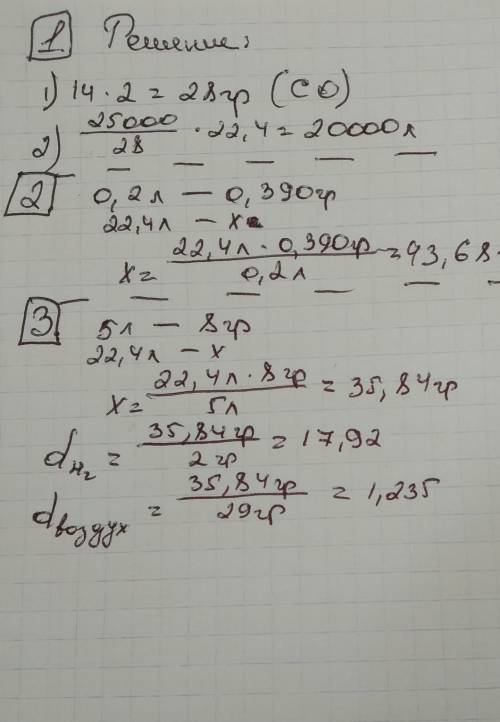 1 Решение:
1) 14 · 2 = 28гр (CO)
2) 25000/28 · 22,4 = 20000л
2 0,2л — 0,390гр
22,4л — x
x = 22,4л · 0,390гр / 0,2л = 43,68
3 5л — 8гр
22,4л — x
x = 22,4л · 8гр / 5л = 35,84гр
dH₂ = 35,84гр / 2гр = 17,92
dвоздух = 35,84гр / 29гр = 1,235